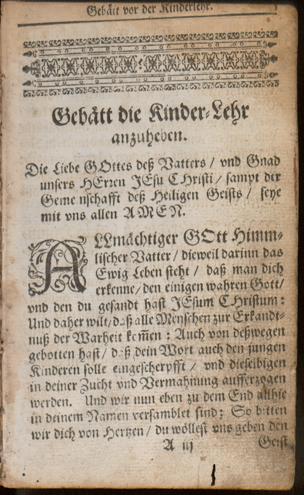 Gebätt vor der Kinderlehr.
Gebätt die Kinder-Lehr
anzuheben.
Die Liebe GOttes deß Vatters / vnd Gnad
unsers HErren JEsu CHristi / sampt der
Gemeinschafft deß Heiligen Geists / seye
mit vns allen AMEN.
ALLmächtiger GOtt Himm-
lischer Vatter / dieweil darinn das
Ewig Leben steht / daß man dich
erkenne / den einigen wahren Gott /
vnd den du gesandt hast JEsum CHristum:
Und daher wilt / daß alle Menschen zur Erkandt-
nuß der Warheit kom̃en: Auch von deßwegen
gebotten hast / daß dein Wort auch den jungen
Kinderen solle eingescherpfft / vnd dieselbigen
in deiner Zucht vnd Vermahnung aufferzogen
werden. Und wir nun eben zu dem End allhie
in deinem Namen versamblet sind: So bitten
wir dich von Hertzen / du wöllest vns geben den
A iij
Geist